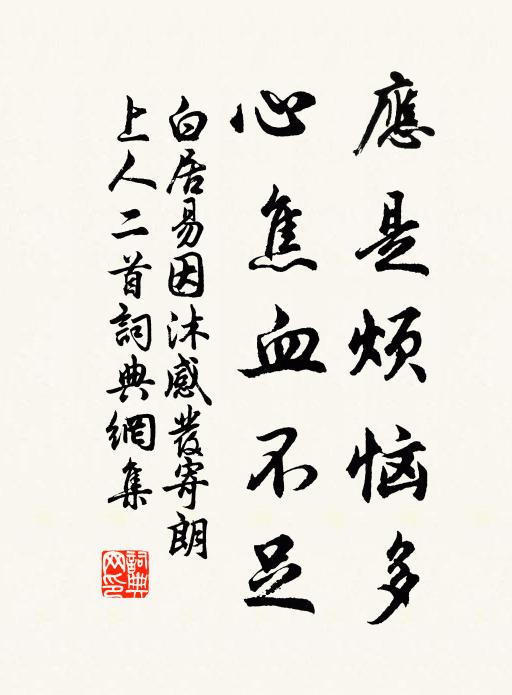 應是烦恼多
心焦血不足
白居易因沐感發寄朗
上人二首詞典網集
詞典
网印